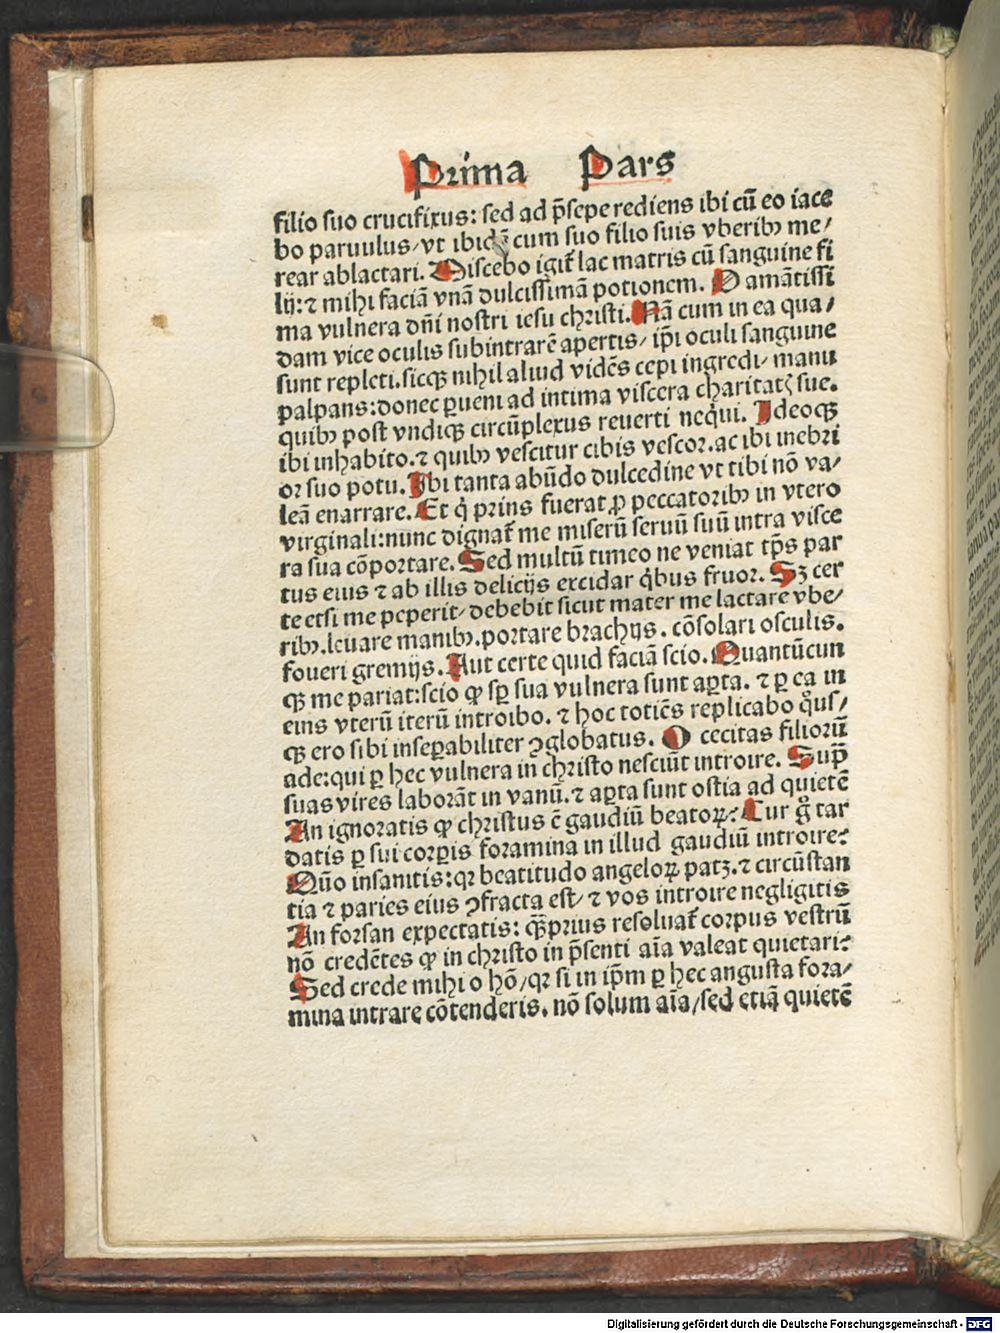 Prima Pars
filio suo crucifixus: sed ad p̄sepe rediens ibi cū eo iace
bo paruulus/vt ibidē cum suo filio suis vberibꝰ me/
rear ablactari. Miscebo igit̄ lac matris cū sanguine fi
lij: ⁊ mihi faciā vnā dulcissimā potionem. O amātissi
ma vulnera dn̄i nostri iesu christi. Nā cum in ea qua/
dam vice oculis subintrarē apertis/ ip̄i oculi sanguine
sunt repleti. sicqꝫ nihil aliud vidēs cepi ingredi/ manu
palpans: donec ꝑueni ad intima viscera charitatꝭ sue.
quibꝰ post vndiqꝫ circūplexus reuerti neq̇ui. Ideoqꝫ
ibi inhabito. ⁊ quibꝰ vescitur cibis vescor. ac ibi inebri
or suo potu. Ibi tanta abūdo dulcedine vt tibi nō va/
leā enarrare. Et q̇ prius fuerat ꝓ peccatoribꝰ in vtero
virginali: nunc dignat̄ me miserū seruū suū intra visce
ra sua cōportare. Sed multū timeo ne veniat tp̄s par
tus eius ⁊ ab illis delicijs excidar q̇bus fruor. Sꝫ cer
te etsi me peperit/ debebit sicut mater me lactare vbe/
ribꝰ. leuare manibꝰ. portare brachijs. cōsolari osculis.
foueri gremijs. Aut certe quid faciā scio. Quantūcun
qꝫ me pariat: scio ꝙ sꝑ sua vulnera sunt aꝑta. ⁊ ꝑ ea in
eius vterū iterū introibo. ⁊ hoc totiēs replicabo qͦus/
qꝫ ero sibi inseꝑabiliter ꝯglobatus. O cecitas filiorū
ade: qui ꝑ hec vulnera in christo nesciūt introire. Sup̄
suas vires laborāt in vanū. ⁊ aꝑta sunt ostia ad quietē
An ignoratis ꝙ christus ē gaudiū beatoꝝ? Cur g̊ tar
datis ꝑ sui corꝑis foramina in illud gaudiū introire?
Quō insanitis: qꝛ beatitudo angeloꝝ patꝫ. ⁊ circūstan
tia ⁊ paries eius ꝯfracta est/ ⁊ vos introire negligitis
An forsan expectatis: qꝫprius resoluat̄ corpus vestrū
nō credētes ꝙ in christo in p̄senti aīa valeat quietari?
Sed crede mihi o hō/ qꝛ si in ip̄m ꝑ hec angusta fora/
mina intrare cōtenderis. nō solum aīa/ sed etiā quietē
Digitalisierung gefördert durch die Deutsche Forschungsgemeinschaft - DFG